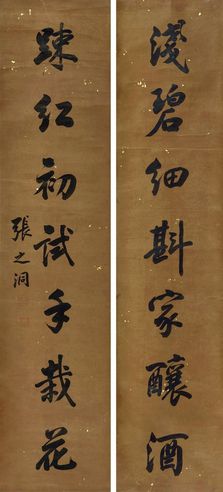 淺碧細斟家釀酒
踈紅初試手栽花
張之洞